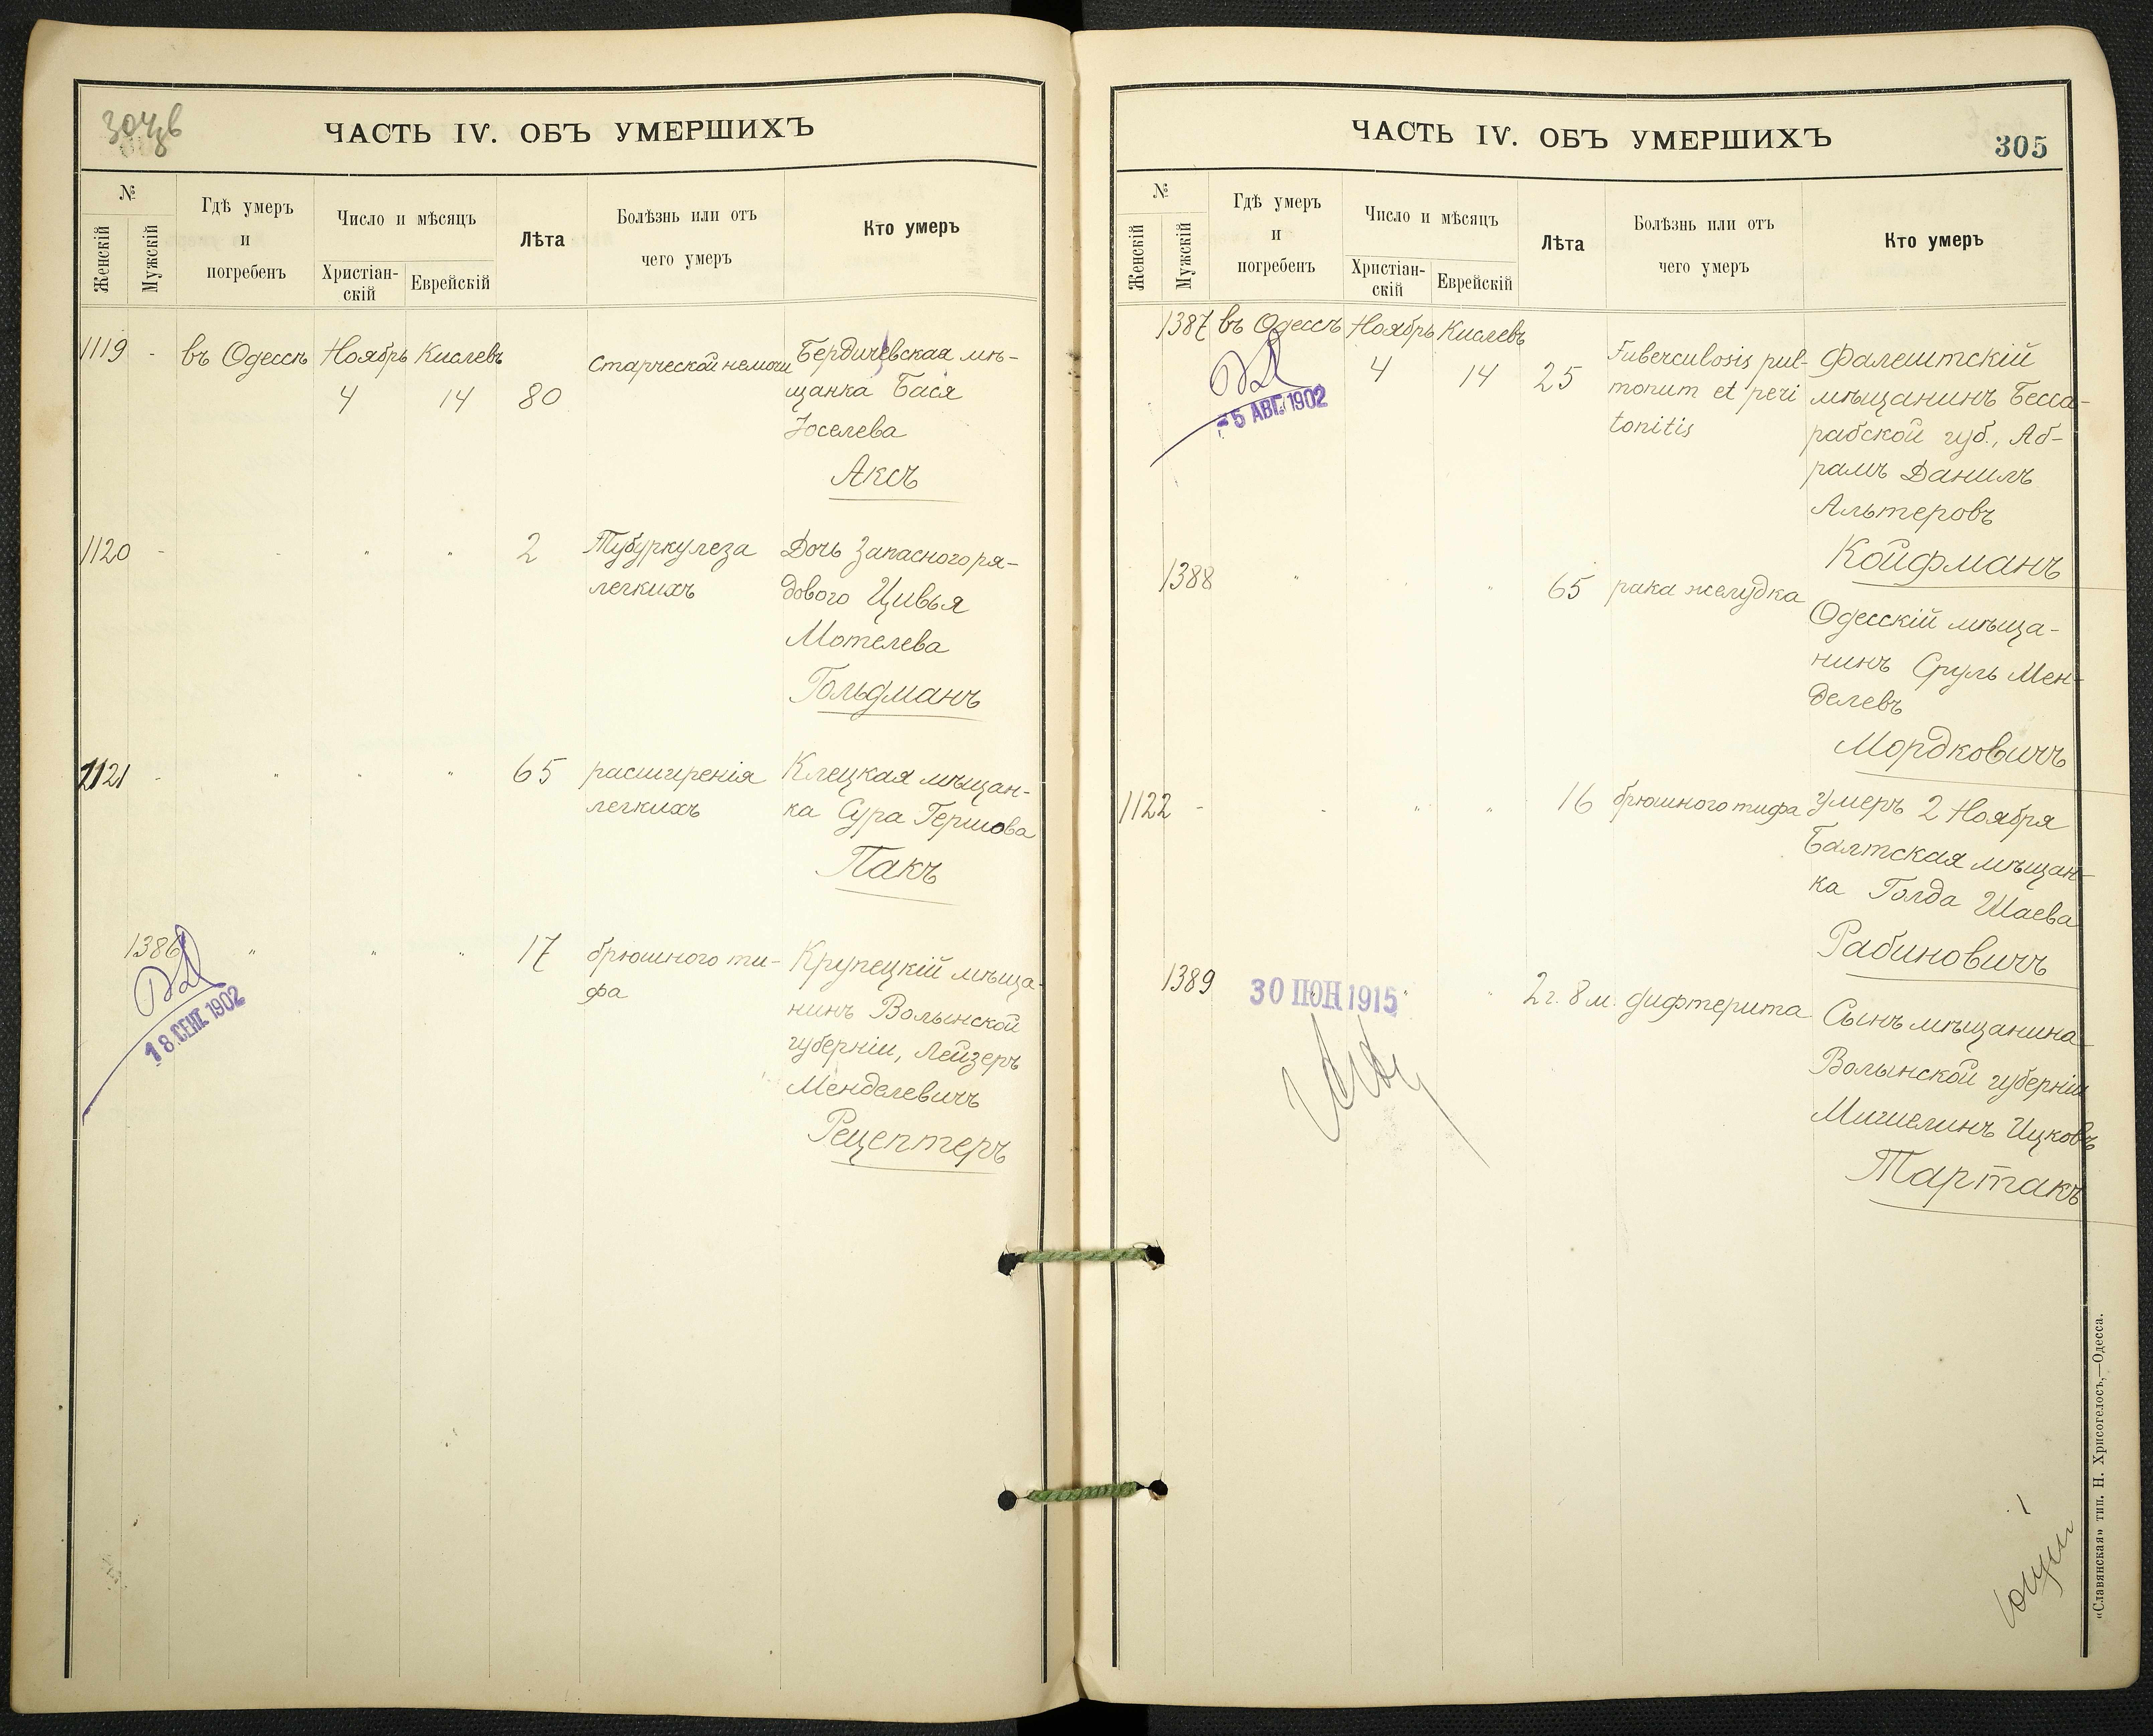 ЧАСТЬ IV. ОБЪ УМЕРШИХЪ
№
Женскій
Мужскій
Гдѣ умеръ
и
погребенъ
Число и мѣсяцъ
Христіан-
скій
Еврейскій
Лѣта
Болѣзнь или отъ
чего умеръ
Кто умеръ
1119 - въ Одессѣ Ноябрь Кислевъ
4 14 80
Старческой немочи
Бердичевская мѣ-
щанка Бася
Іоселева
Аксъ
1120 - - " " 2
Тубуркулеза
легкихъ
Дочь Запасного ря-
дового Цивья
Мотелева
Гольдманъ
1121 - " " " 65
расширенія
легкихъ
Клецкая мѣщан-
ка Сура Гершова
Пакъ
1386 " " " 17
18. СЕНТ. 1902
брюшного ти-
фа
Крупецкій мѣща-
нинъ Волынской
губерніи, Лейзеръ
Менделевичъ
Рецептеръ
ЧАСТЬ IV. ОБЪ УМЕРШИХЪ
305
№
Женскій
Мужскій
Гдѣ умеръ
и
погребенъ
Число и мѣсяцъ
Христіан-
скій
Еврейскій
Лѣта
Болѣзнь или отъ
чего умеръ
Кто умеръ
1387 въ Одессѣ Ноябрь Кислевъ
4 14 25
5 АВГ. 1902
Tuberculosis pul-
monum et peri
tonitis
Фалештскій
мѣщанинъ Бесса-
рабской губ., Аб-
рамъ Данилъ
Альтеровъ
Койфманъ
1388 " " 65 рака желудка
Одесскій мѣща-
нинъ Сруль Мен-
делевъ
Мордковичъ
1122 - - " " 16 брюшного тифа
умеръ 2 Ноября
Балтская мѣщан-
ка Голда Шаева
Рабиновичъ
1389 30 ІЮН 1915 " " 2 г. 8 м. дифтерита
Сынъ мѣщанина
Волынской губерніи
Мишелинъ Ицковъ
Тартакъ
«Славянская» тип. Н. Хрисогелосъ,—Одесса.